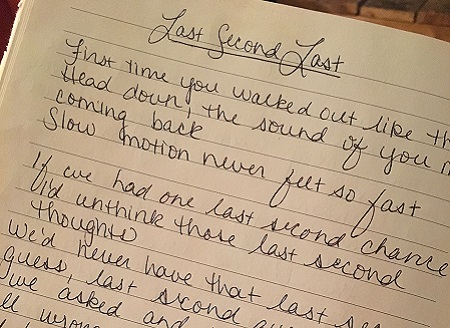 Last Second Last
First time you walked out like th
Head down, the sound of you n
coming back
Slow motion never felt so fast
If we had one last second chance
I'd unthink those last second
thoughts
We'd never have that last se
guess, last second
we asked and
ll wrong